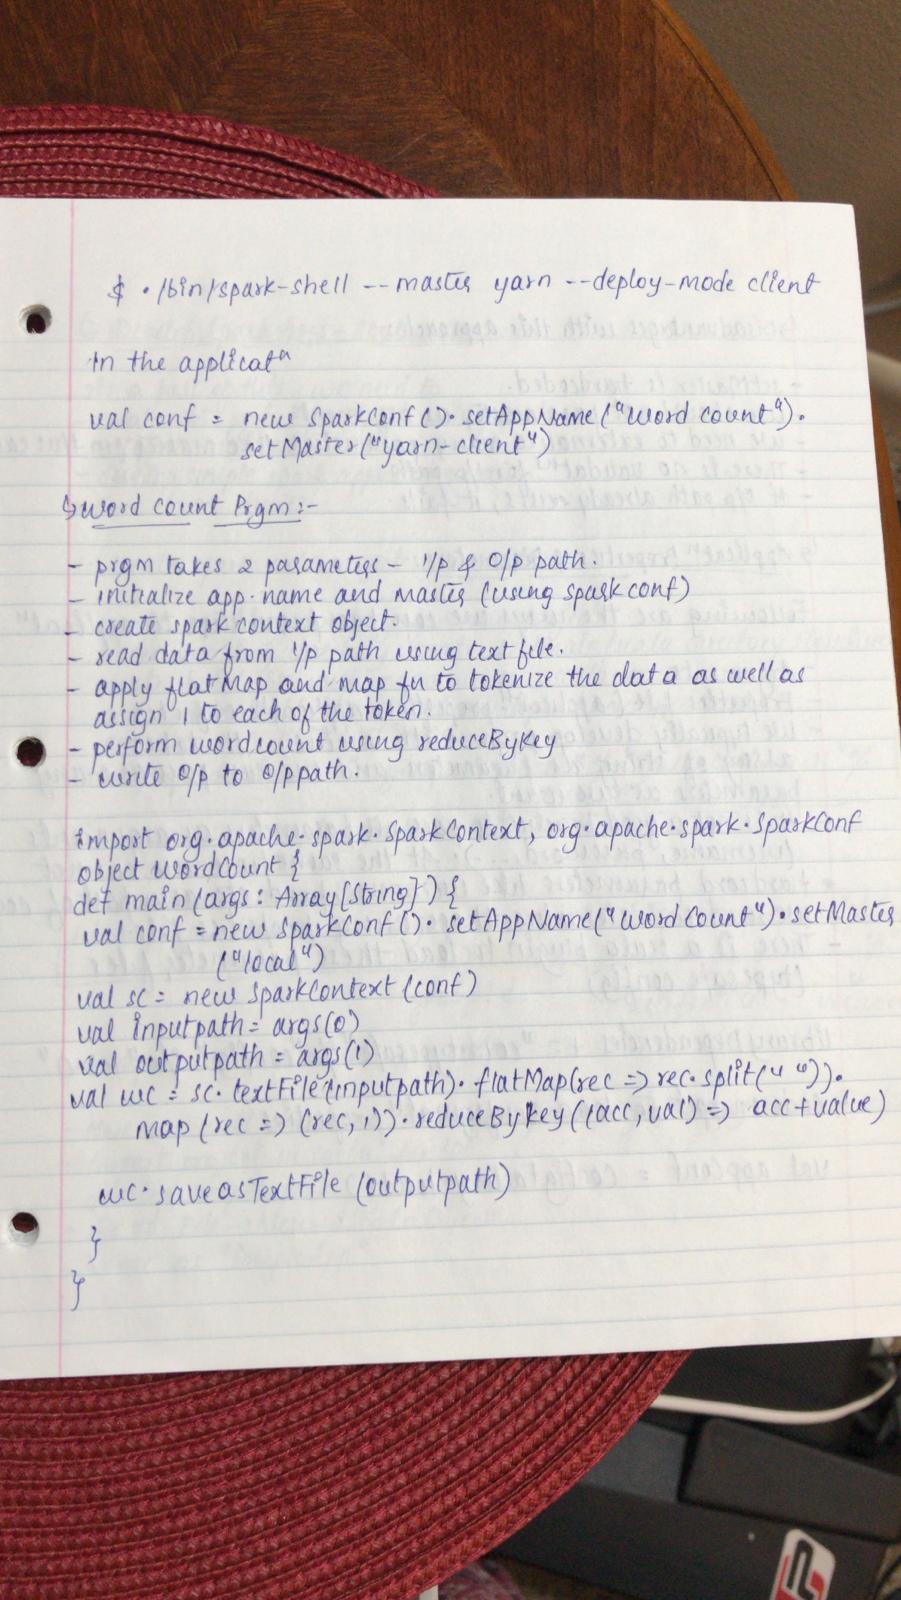 $ ./bin/spark-shell --master yarn --deploy-mode client
In the applicatⁿ
val conf = new SparkConf().setAppName("Word count").
setMaster("yarn-client")
↳ Word Count Prgm :-
- prgm takes 2 parameters - i/p & o/p path.
- initialize app.name and master (using sparkconf)
- create spark context object.
- read data from i/p path using textfile.
- apply flatMap and map fn to tokenize the data as well as
assign 1 to each of the token.
- perform wordcount using reduceByKey
- write o/p to o/p path.
import org.apache.spark.SparkContext, org.apache.spark.SparkConf
object wordcount {
def main (args: Array[String]) {
val conf = new SparkConf().setAppName("Word Count").setMaster
("local")
val sc = new SparkContext (conf)
val inputpath = args(0)
val outputpath = args(1)
val wc = sc.textFile(inputpath).flatMap(rec => rec.split(" ")).
map (rec => (rec, 1)).reduceByKey((acc, val) => acc+value)
wc.saveasTextFile (outputpath)
}
}